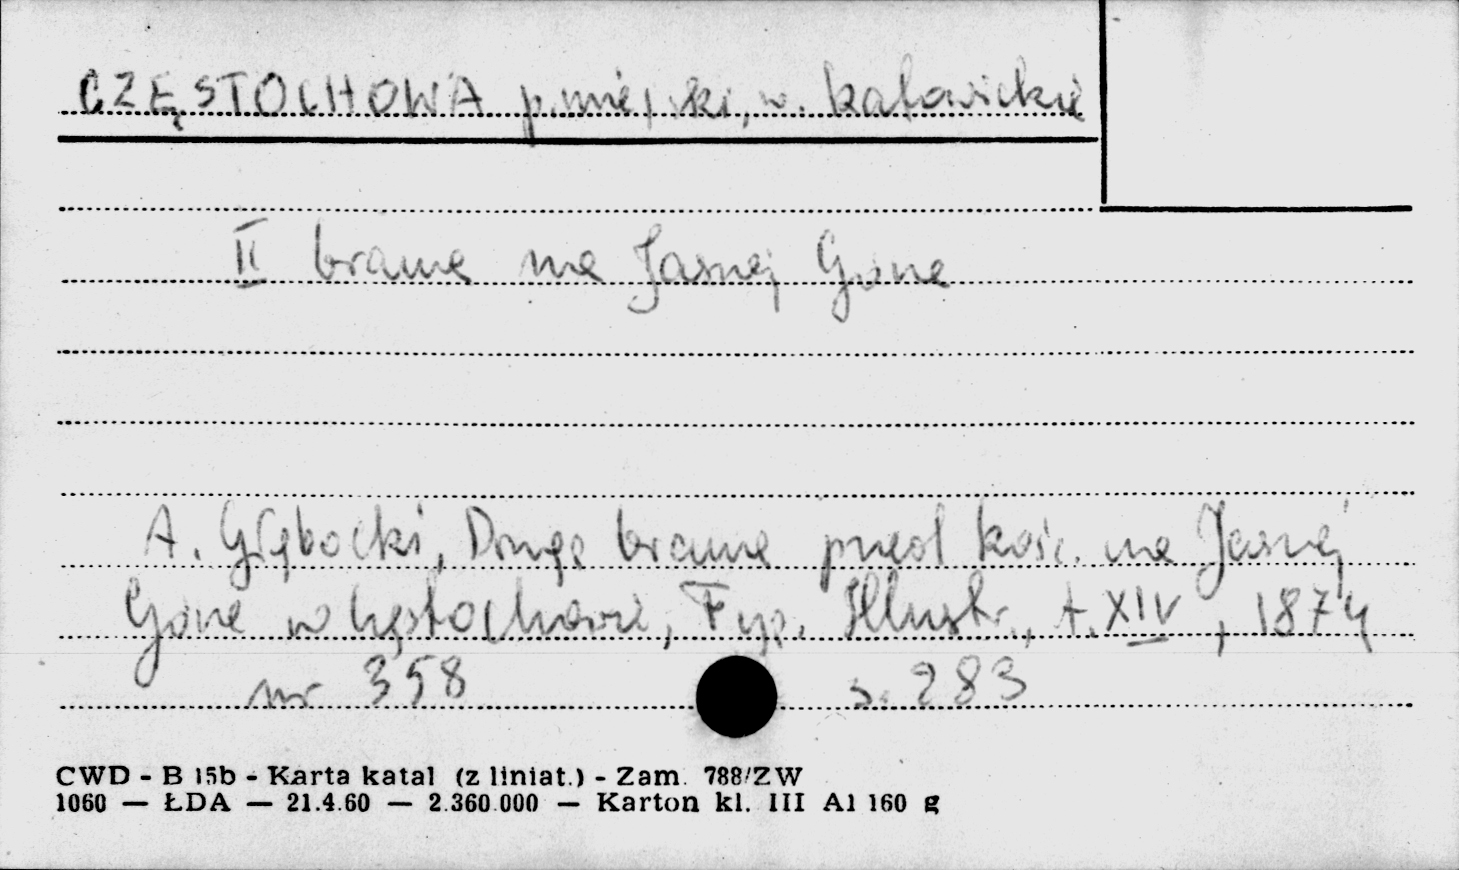 CZĘSTOCHOWA p. miejski, w. katowickie
II brama na Jasnej Górze
A. Głębocki, Druga brama przed kośc. na Jasnej
Górze w Częstochowie, Tyg. Illustr., t. XIV, 1874
nr 358 s. 283
CWD - B 15b - Karta katal (z liniat.) - Zam. 788/ZW
1060 — ŁDA — 21.4.60 — 2.360.000 — Karton kl. III A1 160 g